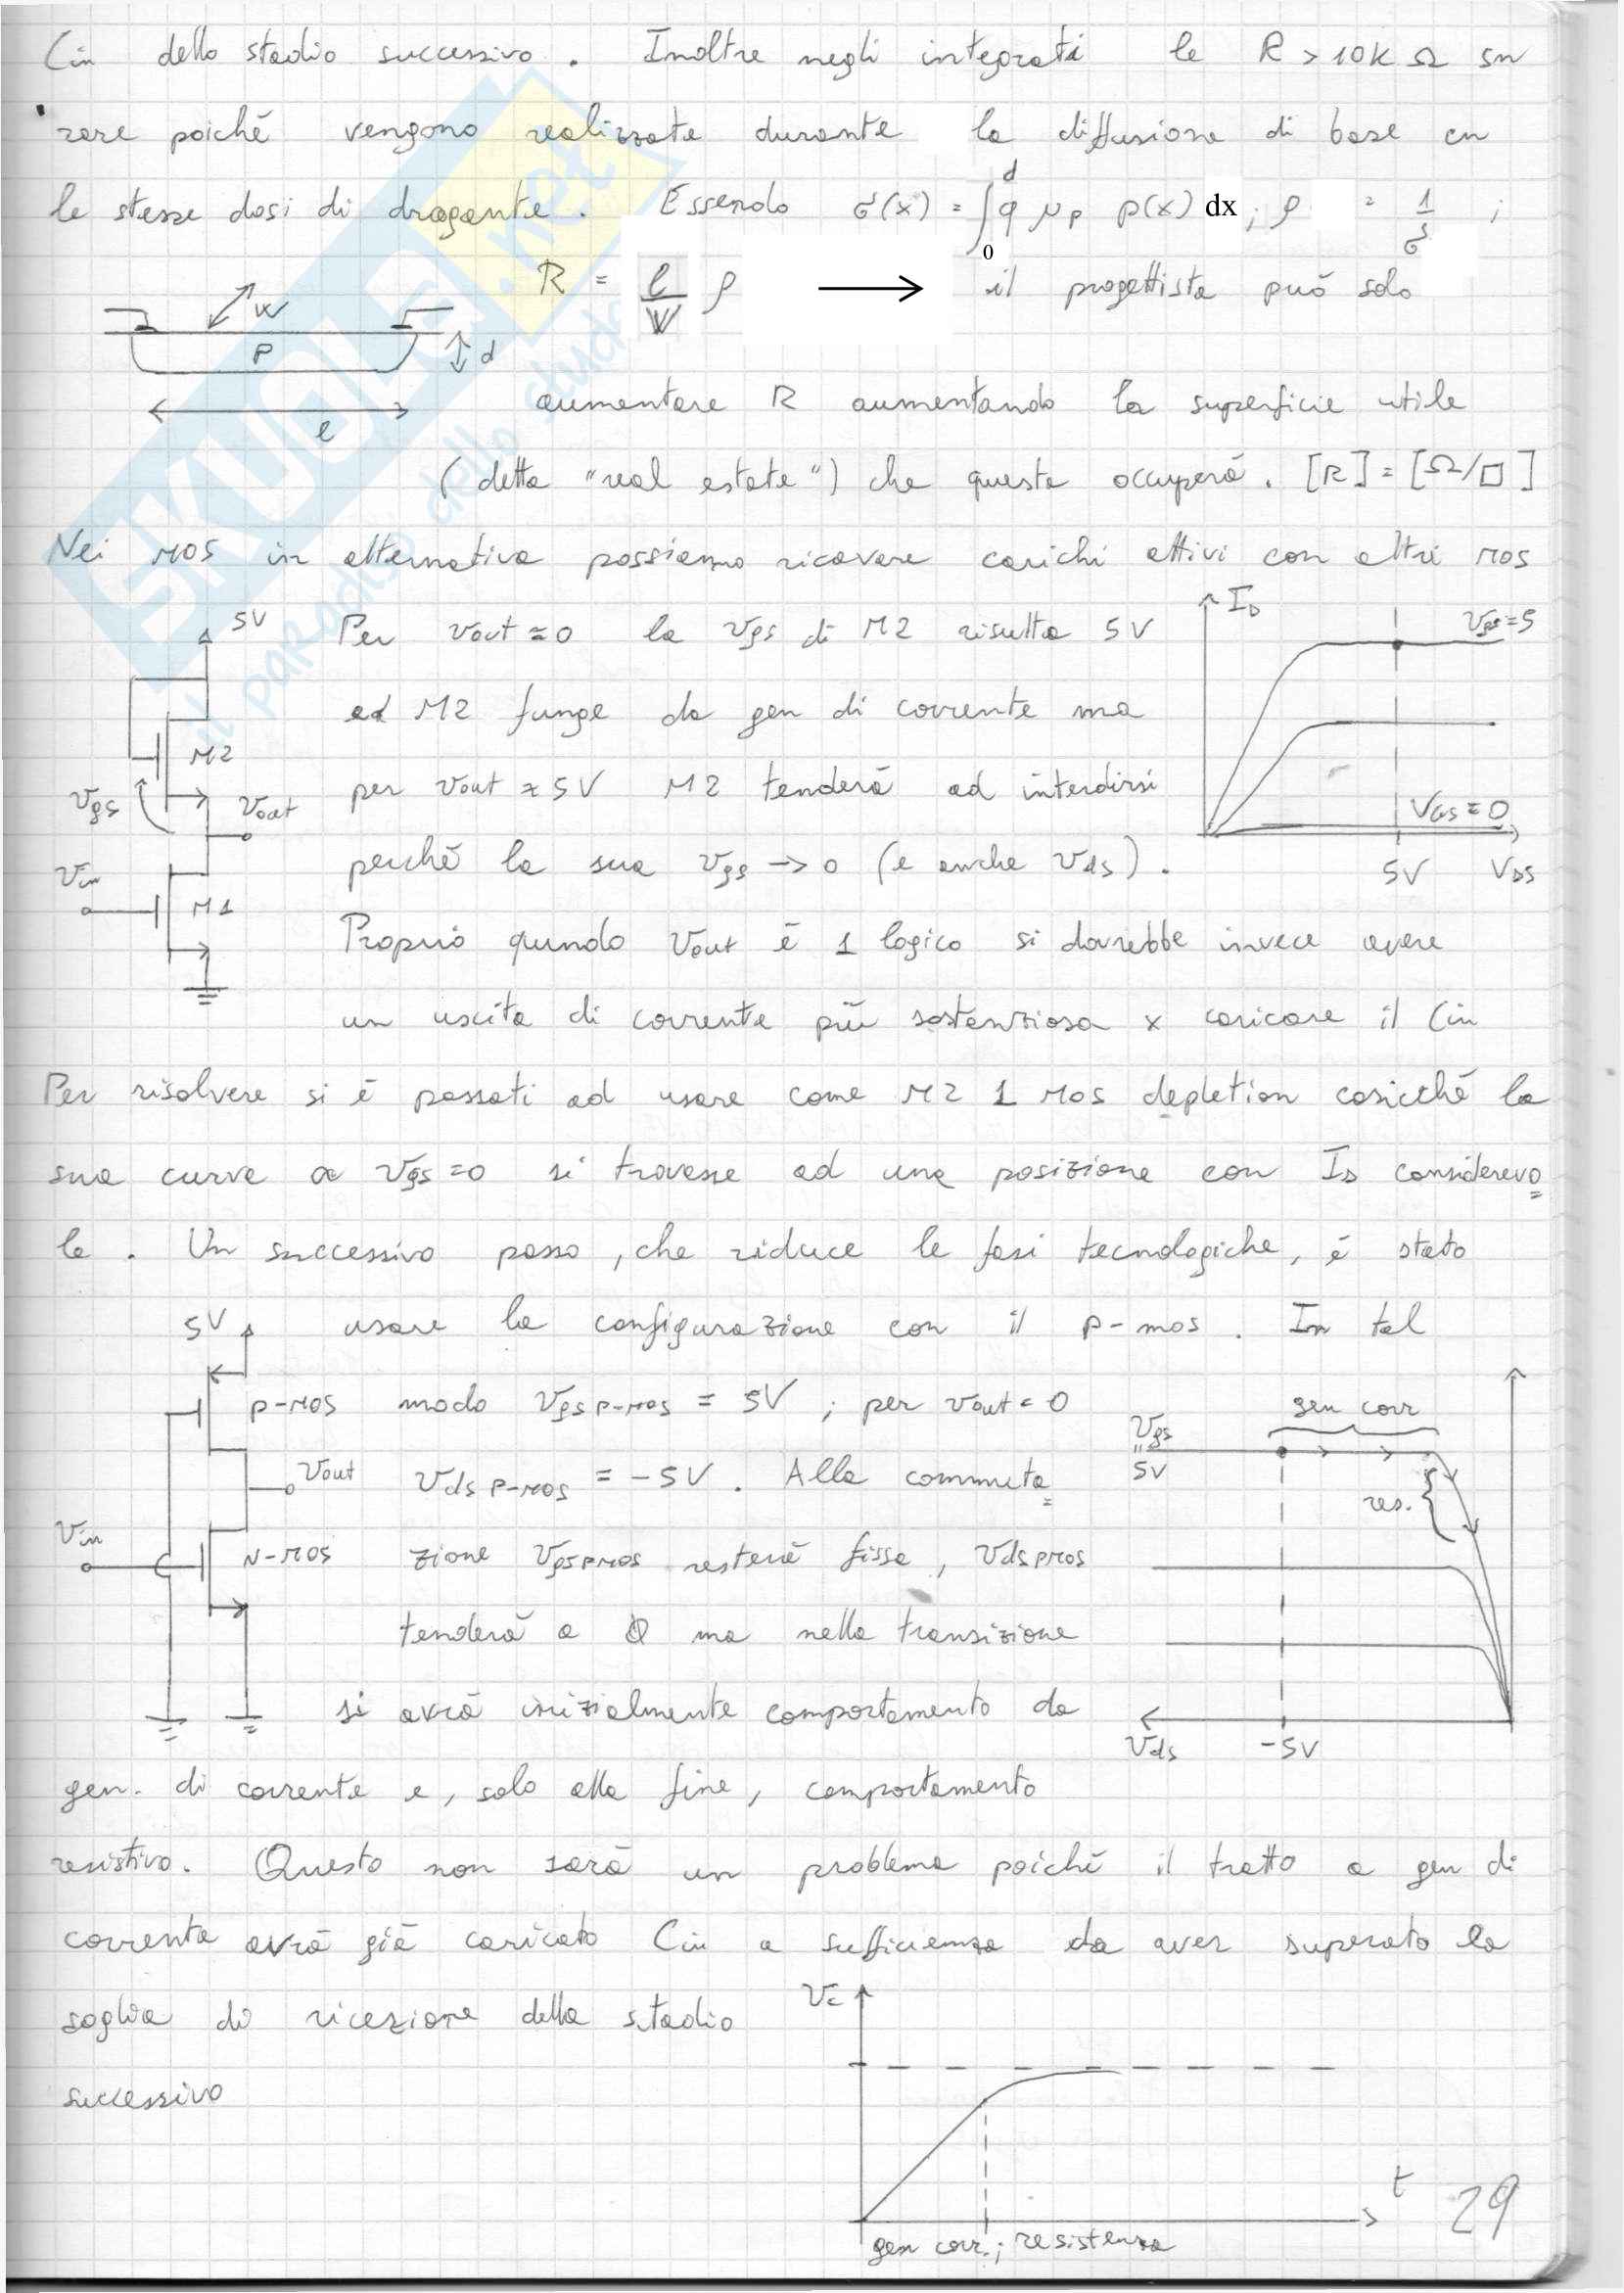 Cin dello stadio successivo. Inoltre negli integrati le R > 10K Ω sn
rare poiché vengono realizzate durante la diffusione di base cn
le stesse dosi di drogante. Essendo σ(x) = ∫₀ᵈ q μp p(x) dx ; ρ = 1/σ ;
R = l/W ρ → il progettista può solo
W
P
d
l
aumentare R aumentando la superficie utile
(detta "real estate") che questa occuperà. [R] = [Ω/□]
Nei MOS in alternativa possiamo ricavare carichi attivi con altri MOS
5V
M2
Vgs
Vout
Vin
M1
Per Vout ≈ 0 la Vgs di M2 risulta 5V
ed M2 funge da gen di corrente ma
per Vout ≈ 5V M2 tenderà ad interdirsi
perché la sua Vgs → 0 (e anche Vds).
ID
Vgs=5
VGS=0
5V VDS
Proprio quando Vout è 1 logico si dovrebbe invece avere
un uscita di corrente più sostanziosa x caricare il Cin
Per risolvere si è passati ad usare come M2 1 MOS depletion cosicché la
sua curva a Vgs=0 si trovasse ad una posizione con ID considerevo
le. Un successivo passo, che riduce le fasi tecnologiche, è stato
usare la configurazione con il p-mos. In tal
5V
P-MOS
Vout
Vin
N-MOS
modo Vgs P-MOS = 5V ; per Vout = 0
Vds P-MOS = -5V. Alla commuta
zione Vgs PMOS resterà fissa, Vds PMOS
tenderà a 0 ma nella transizione
si avrà inizialmente comportamento da
gen corr
Vgs
"
5V
res.
Vds -5V
gen. di corrente e, solo alla fine, comportamento
resistivo. Questo non sarà un problema poiché il tratto a gen di
corrente avrà già caricato Cin a sufficienza da aver superato la
soglia di ricezione dello stadio
successivo
Vc
t
gen corr. ; resistenza
29
SKUOLA.net
il paradiso dello studente